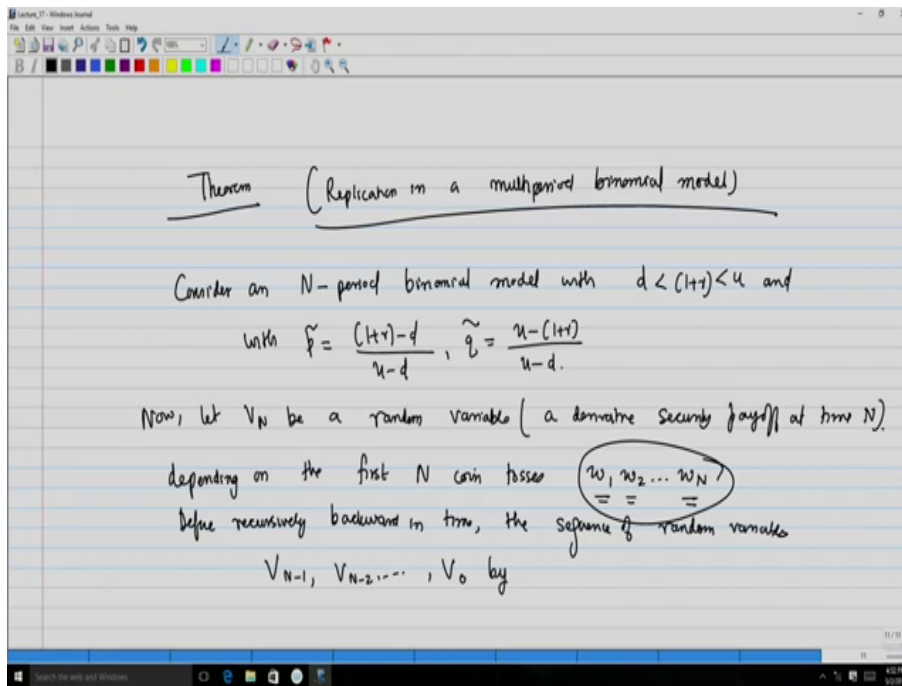 Lecture_17 - Windows Journal
File Edit View Insert Actions Tools Help
B I
Theorem (Replication in a multiperiod binomial model)
Consider an N-period binomial model with d < (1+r) < u and
with p̃ = ((1+r)-d)/(u-d), q̃ = (u-(1+r))/(u-d).
Now, let V_N be a random variable (a derivative security payoff at time N).
depending on the first N coin tosses (w₁ w₂ ... w_N)
Define recursively backward in time, the sequence of random variables
V_{N-1}, V_{N-2}, ..., V_0 by
11 / 11
11
Search the web and Windows